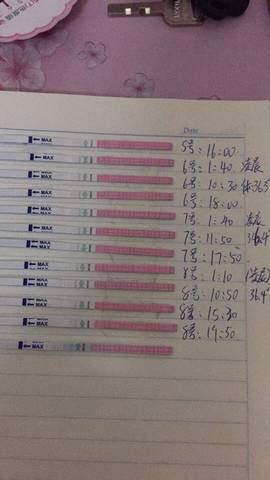 Date
MAX 5号: 16:00
MAX 6号: 1:40 凌晨
MAX 6号: 10:30 体36.5°
MAX 6号: 18:00
MAX 7号: 1:40 凌晨
MAX 7号: 11:50 36.4°
MAX 7号: 17:50
MAX 8号: 1:10 (凌晨)
MAX 8号: 10:50 36.4°
MAX 8号: 15:30
MAX 8号: 19:30
MAX